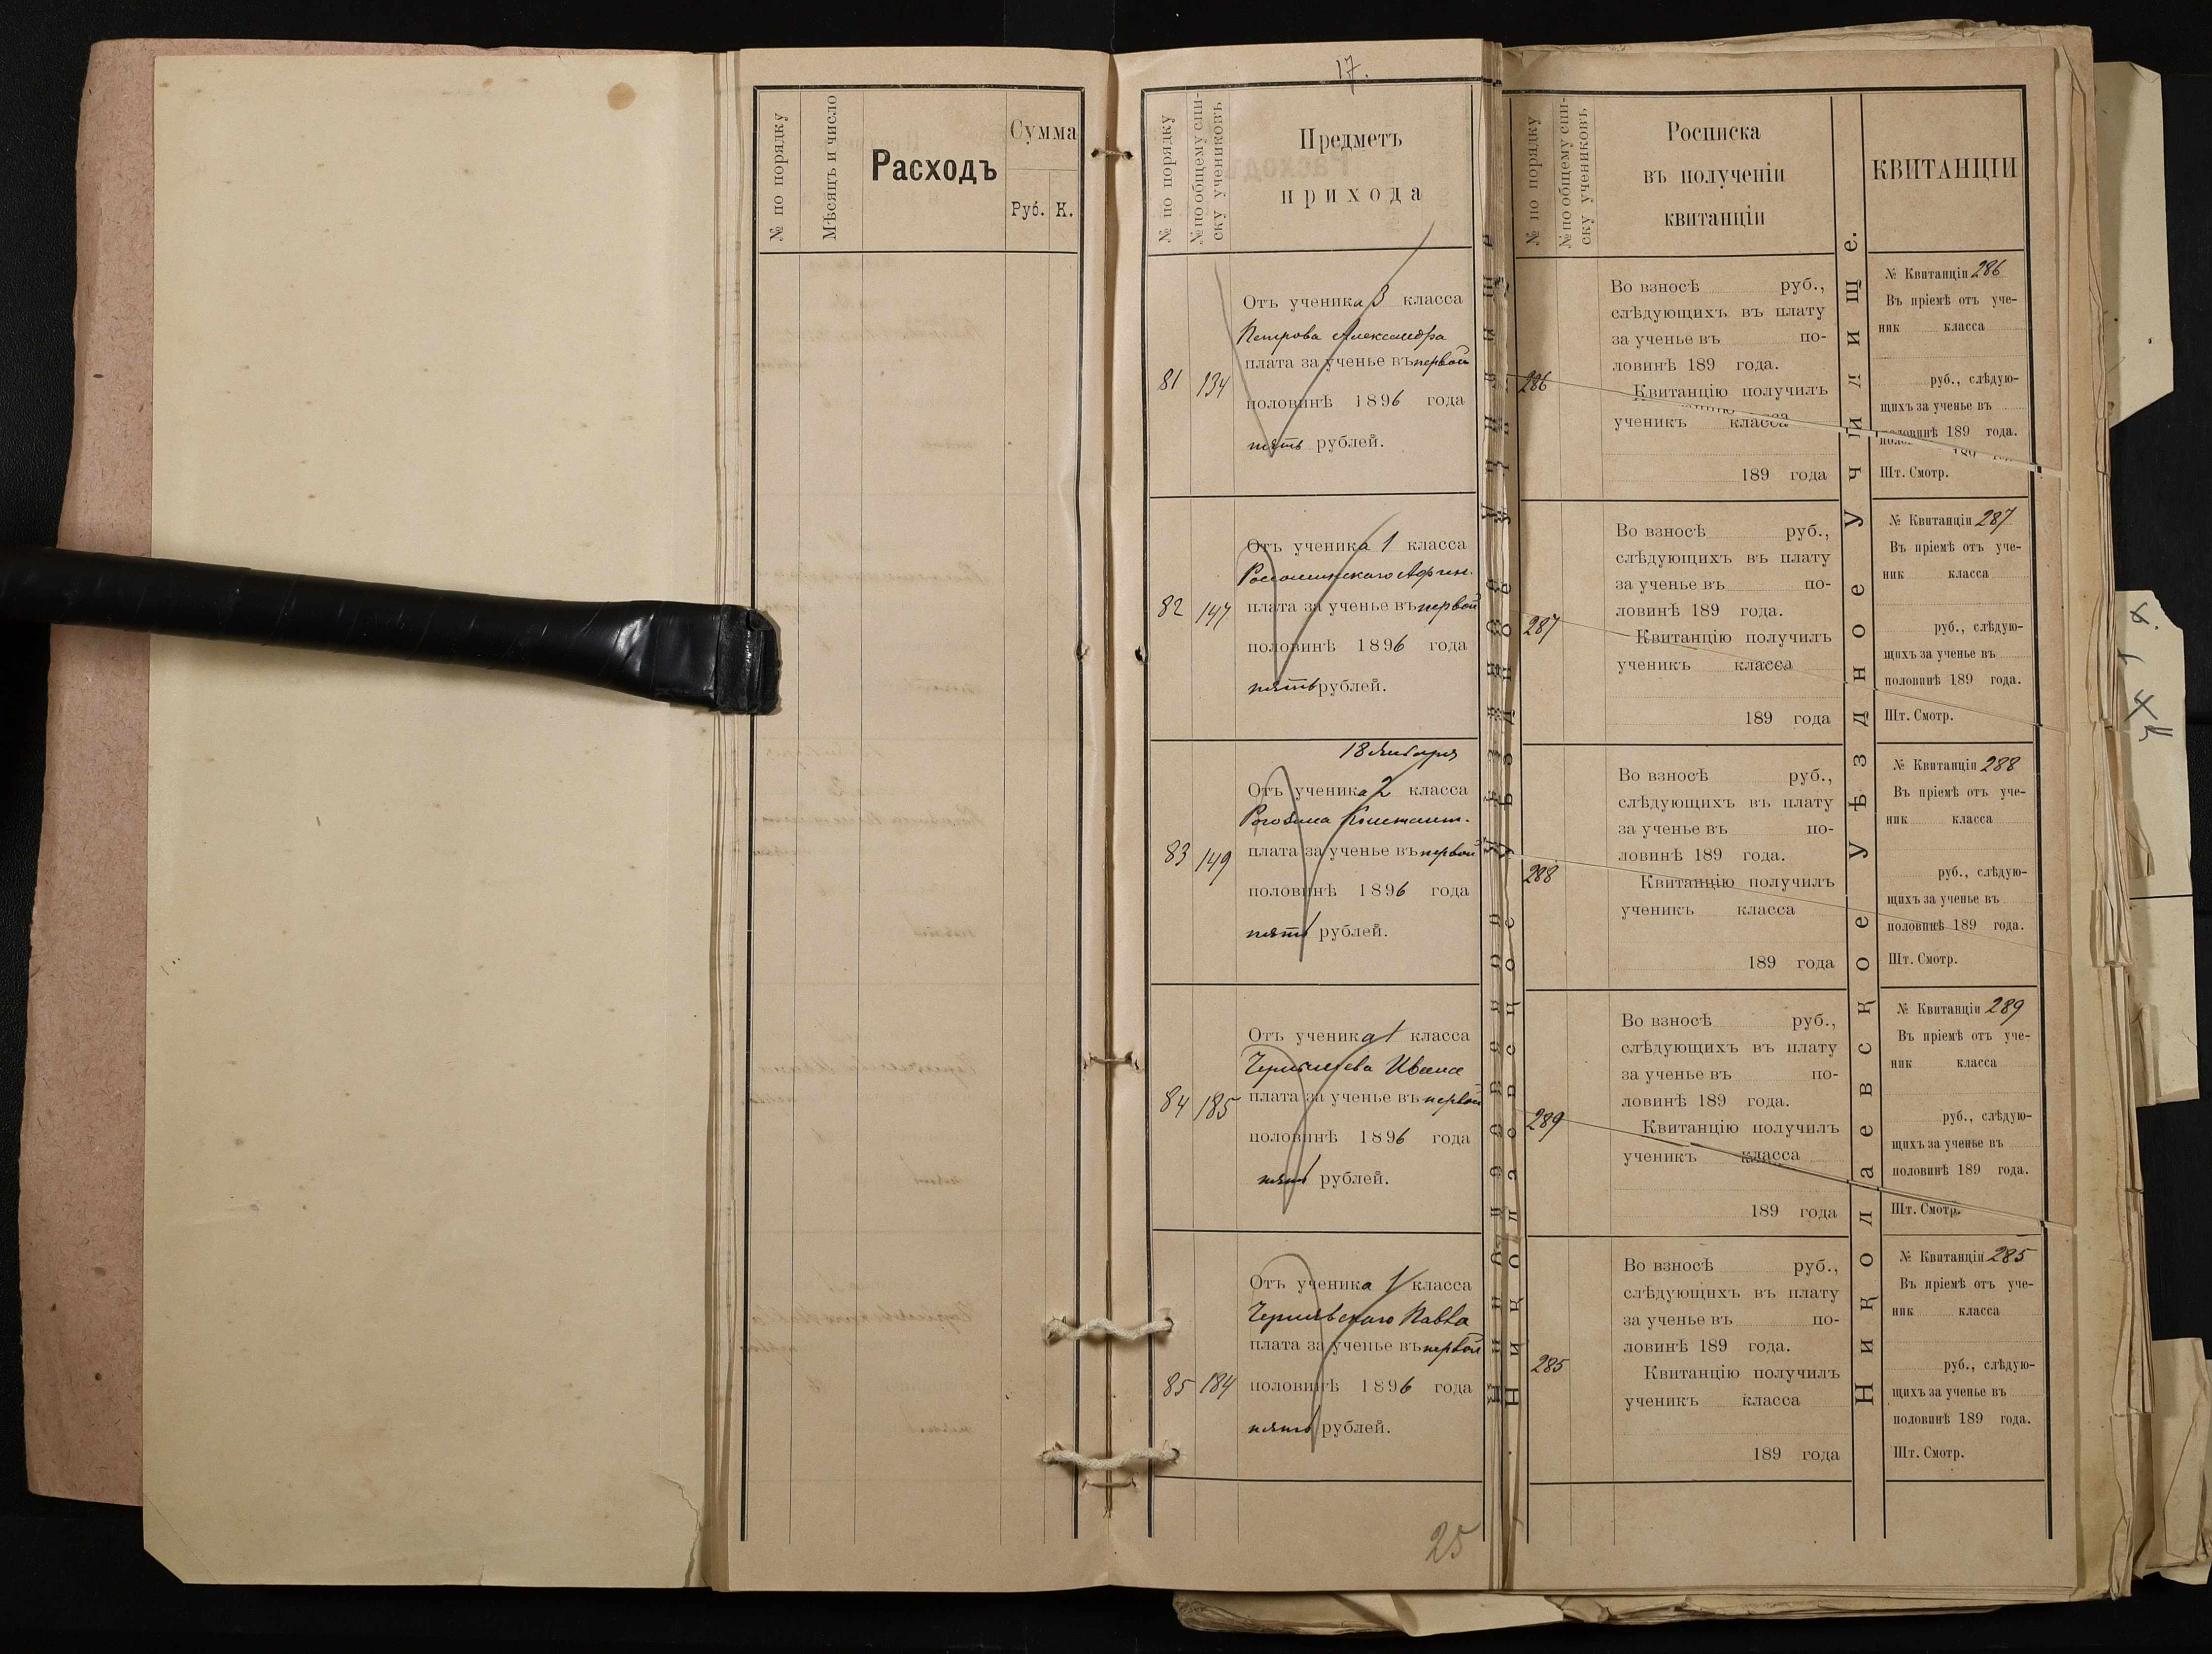 № по порядку
Мѣсяцъ и число
Расходъ
Сумма
Руб. К.
17.
№ по порядку
№ по общему спи-
ску учениковъ
Предметъ
прихода
81
134
Отъ ученика 3 класса
Петрова Александра
плата за ученье въ первой
половинѣ 1896 года
пять рублей.
82
147
Отъ ученика 1 класса
плата за ученье въ первой
половинѣ 1896 года
пять рублей.
18 января
83
149
Отъ ученика 2 класса
Константин.
плата за ученье въ первой
половинѣ 1896 года
пять рублей.
84
185
Отъ ученика 1 класса
Ивана
плата за ученье въ первой
половинѣ 1896 года
пять рублей.
85
184
Отъ ученика 1 класса
Чернявскаго Павла
плата за ученье въ первой
половинѣ 1896 года
пять рублей.
25
№ по порядку
№ по общему спи-
ску учениковъ
Росписка
въ полученіи
квитанціи
286
Во взносѣ руб.,
слѣдующихъ въ плату
за ученье въ по-
ловинѣ 189 года.
Квитанцію получилъ
ученикъ класса
189 года
287
Во взносѣ руб.,
слѣдующихъ въ плату
за ученье въ по-
ловинѣ 189 года.
Квитанцію получилъ
ученикъ класса
189 года
288
Во взносѣ руб.,
слѣдующихъ въ плату
за ученье въ по-
ловинѣ 189 года.
Квитанцію получилъ
ученикъ класса
189 года
289
Во взносѣ руб.,
слѣдующихъ въ плату
за ученье въ по-
ловинѣ 189 года.
Квитанцію получилъ
ученикъ класса
189 года
285
Во взносѣ руб.,
слѣдующихъ въ плату
за ученье въ по-
ловинѣ 189 года.
Квитанцію получилъ
ученикъ класса
189 года
Николаевское Уѣздное Училище.
КВИТАНЦІИ
№ Квитанціи 286
Въ пріемѣ от уче-
ник класса
руб., слѣдую-
щихъ за ученье въ
половинѣ 189 года.
Шт. Смотр.
№ Квитанціи 287
Въ пріемѣ отъ уче-
ник класса
руб., слѣдую-
щихъ за ученье въ
половинѣ 189 года.
Шт. Смотр.
№ Квитанціи 288
Въ пріемѣ отъ уче-
ник класса
руб., слѣдую-
щихъ за ученье въ
половинѣ 189 года.
Шт. Смотр.
№ Квитанціи 289
Въ пріемѣ отъ уче-
ник класса
руб., слѣдую-
щихъ за ученье въ
половинѣ 189 года.
Шт. Смотр.
№ Квитанціи 285
Въ пріемѣ отъ уче-
ник класса
руб., слѣдую-
щихъ за ученье въ
половинѣ 189 года.
Шт. Смотр.